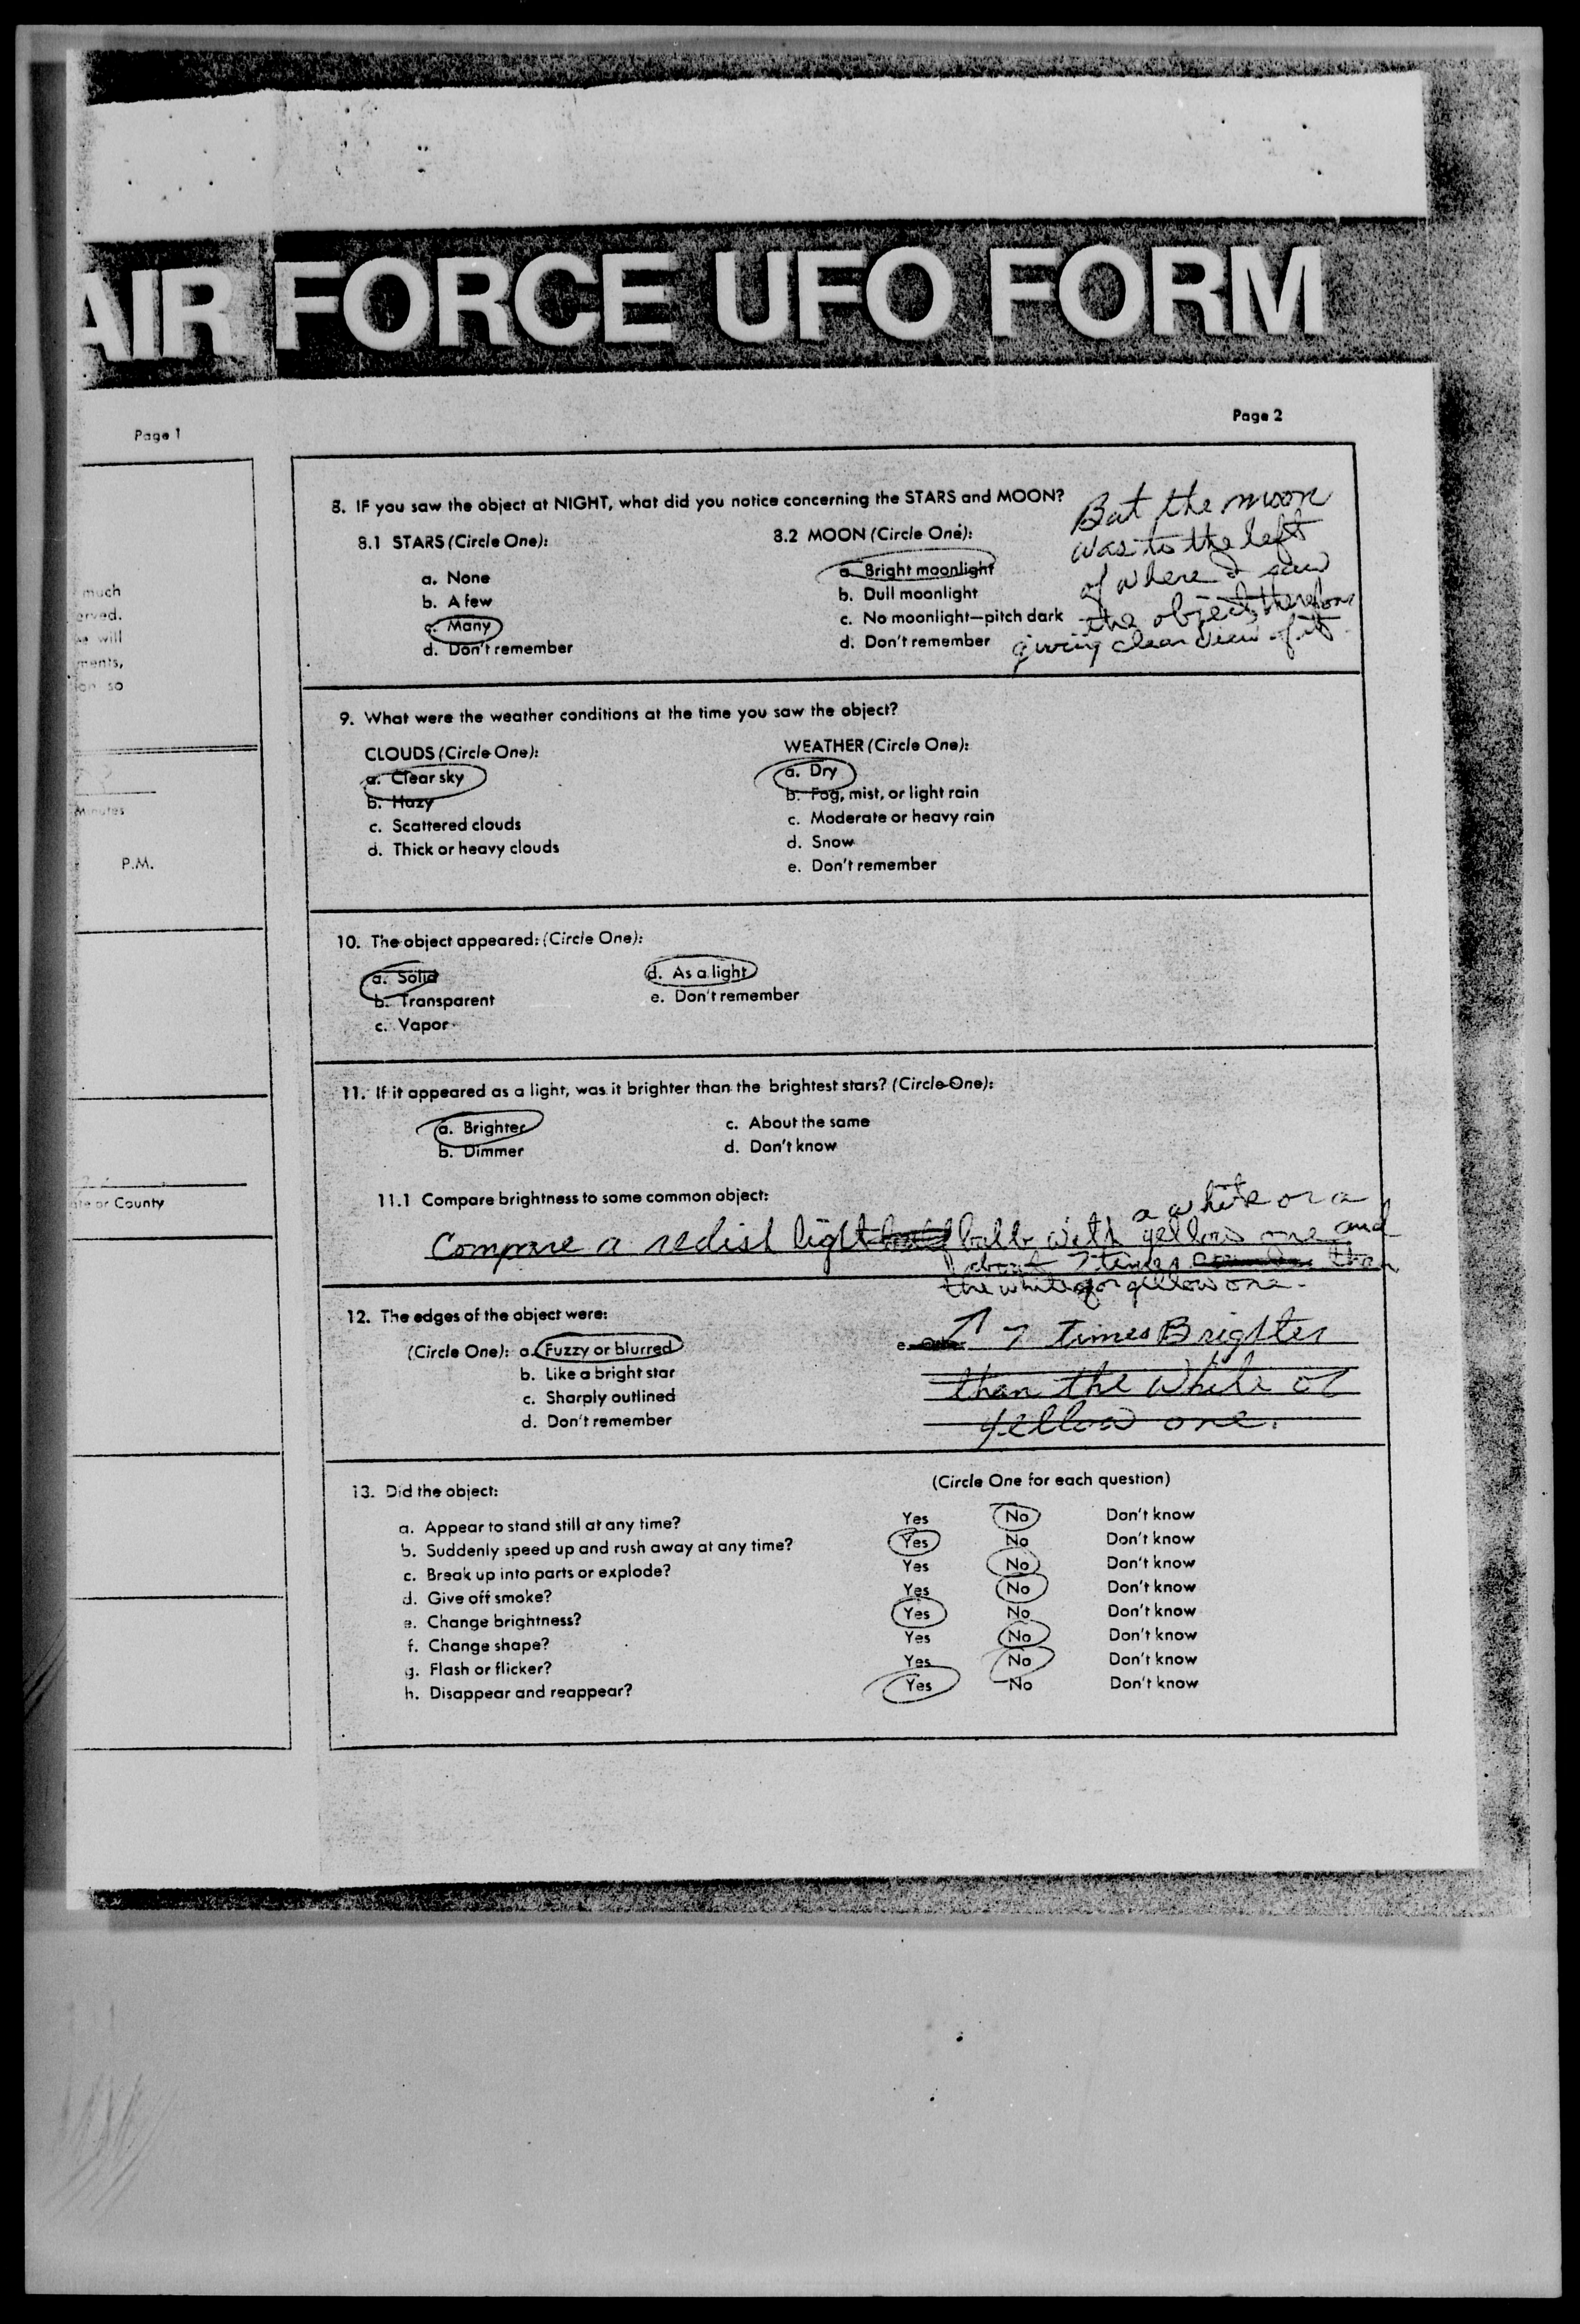 AIR FORCE UFO FORM
Page 1
Page 2
much
erved.
we will
ments,
ion so
Minutes
P.M.
ate or County
8. IF you saw the object at NIGHT, what did you notice concerning the STARS and MOON?
8.1 STARS (Circle One):
a. None
b. A few
c. Many
d. Don't remember
8.2 MOON (Circle One):
a. Bright moonlight
b. Dull moonlight
c. No moonlight—pitch dark
d. Don't remember
But the moon
was to the left
of where I saw
the object, therefore
giving clear view of it.
9. What were the weather conditions at the time you saw the object?
CLOUDS (Circle One):
a. Clear sky
b. Hazy
c. Scattered clouds
d. Thick or heavy clouds
WEATHER (Circle One):
a. Dry
b. Fog, mist, or light rain
c. Moderate or heavy rain
d. Snow
e. Don't remember
10. The object appeared: (Circle One):
a. Solid
b. Transparent
c. Vapor
d. As a light
e. Don't remember
11. If it appeared as a light, was it brighter than the brightest stars? (Circle One):
a. Brighter
b. Dimmer
c. About the same
d. Don't know
11.1 Compare brightness to some common object:
a white or a
Compare a redist light bulb with yellow one and
about 7 times than
the white or yellow one.
12. The edges of the object were:
(Circle One): a. Fuzzy or blurred
b. Like a bright star
c. Sharply outlined
d. Don't remember
e. Other
↑ 7 times Brighter
than the white or
yellow one.
13. Did the object:
(Circle One for each question)
a. Appear to stand still at any time? Yes No Don't know
b. Suddenly speed up and rush away at any time? Yes No Don't know
c. Break up into parts or explode? Yes No Don't know
d. Give off smoke? Yes No Don't know
e. Change brightness? Yes No Don't know
f. Change shape? Yes No Don't know
g. Flash or flicker? Yes No Don't know
h. Disappear and reappear? Yes No Don't know